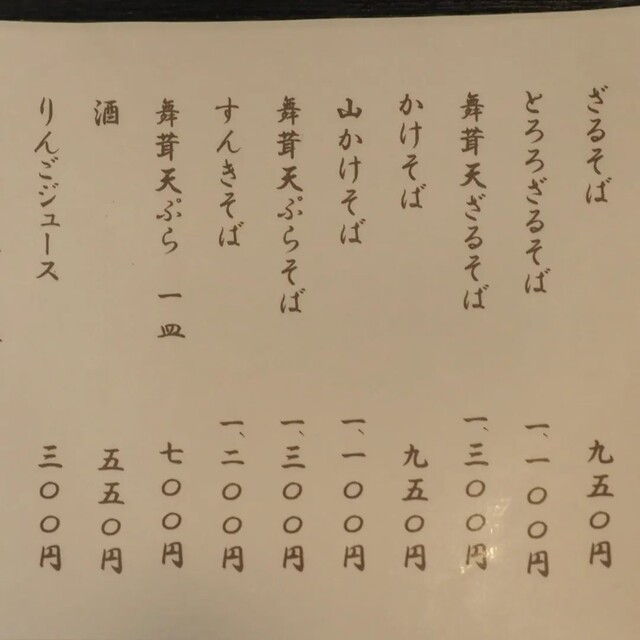 ざるそば 九五〇円
とろろざるそば 一、一〇〇円
舞茸天ざるそば 一、三〇〇円
かけそば 九五〇円
山かけそば 一、一〇〇円
舞茸天ぷらそば 一、三〇〇円
すんきそば 一、二〇〇円
舞茸天ぷら 一皿 七〇〇円
酒 五五〇円
りんごジュース 三〇〇円